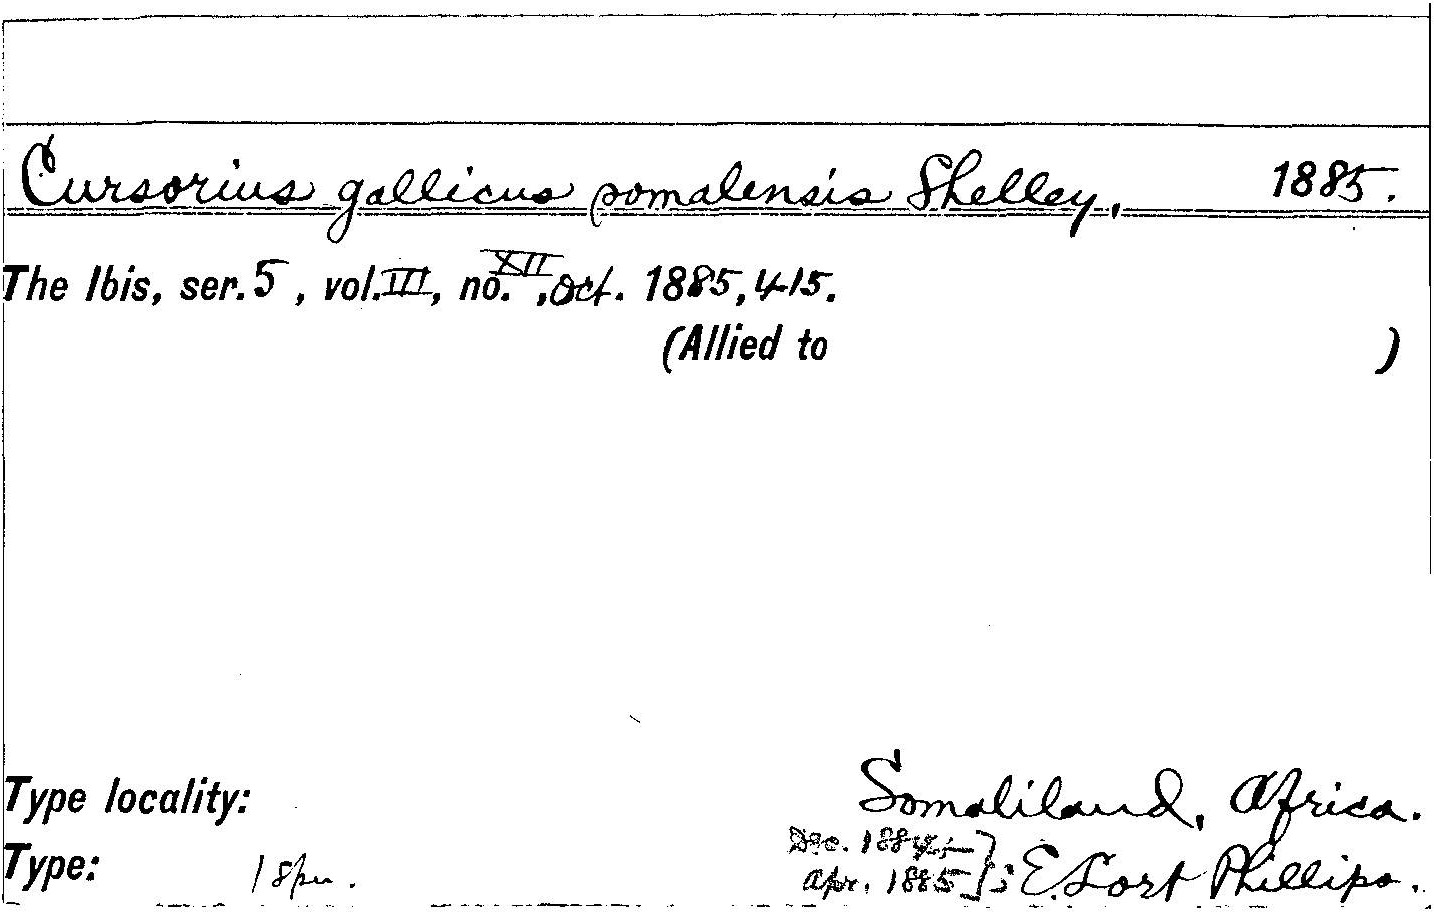 Cursorius gallicus somalensis Shelley, 1885.
The Ibis, ser. 5, vol. III, no. XII, Oct. 1885, 415.
(Allied to )
Type locality: Somaliland, Africa.
Type: 1 spm. Dec. 1884- Apr. 1885}; E. Lort Phillips.